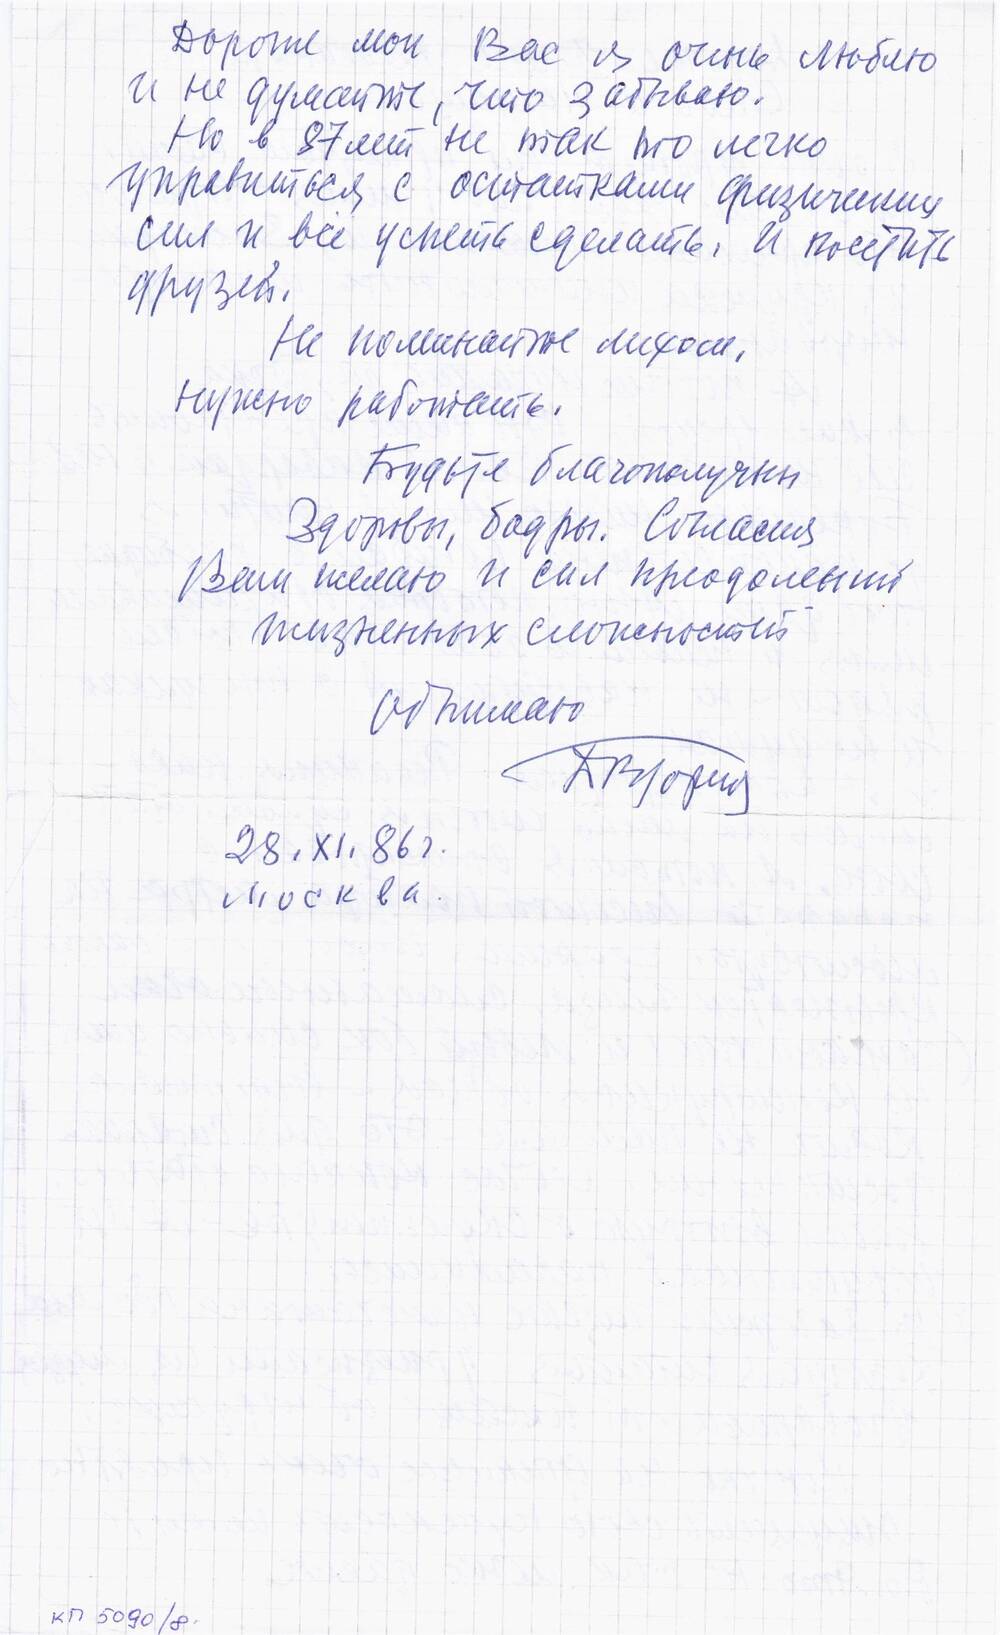 Дорогие мои Вас я очень люблю
и не думайте, что забываю.
Но в 87 лет не так то легко
управиться с остатками физических
сил и всё успеть сделать. И посетить
друзей.
Не поминайте лихом,
нужно работать.
Будьте благополучны
Здоровы, бодры. Согласия
Вам желаю и сил преодолений
жизненных сложностей
Обнимаю
28.XI.86 г.
Москва.
КП 5090/8.